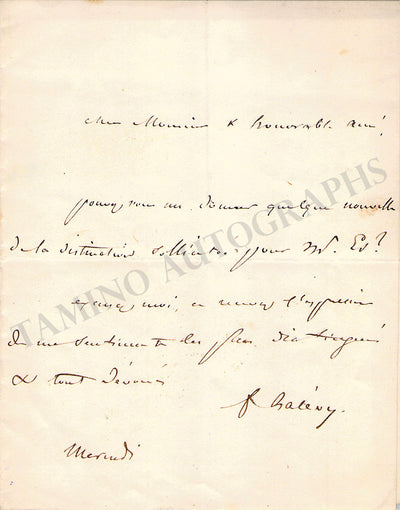 cher Monsieur & honorable ami,
pouvez vous me donner quelque nouvelle
de la distinction sollicitée pour Mr. Ed?
excusez moi, et recevez l'expression
de mes sentiments les plus distingués
& tout dévoués
f halévy.
Mercredi
TAMINO AUTOGRAPHS